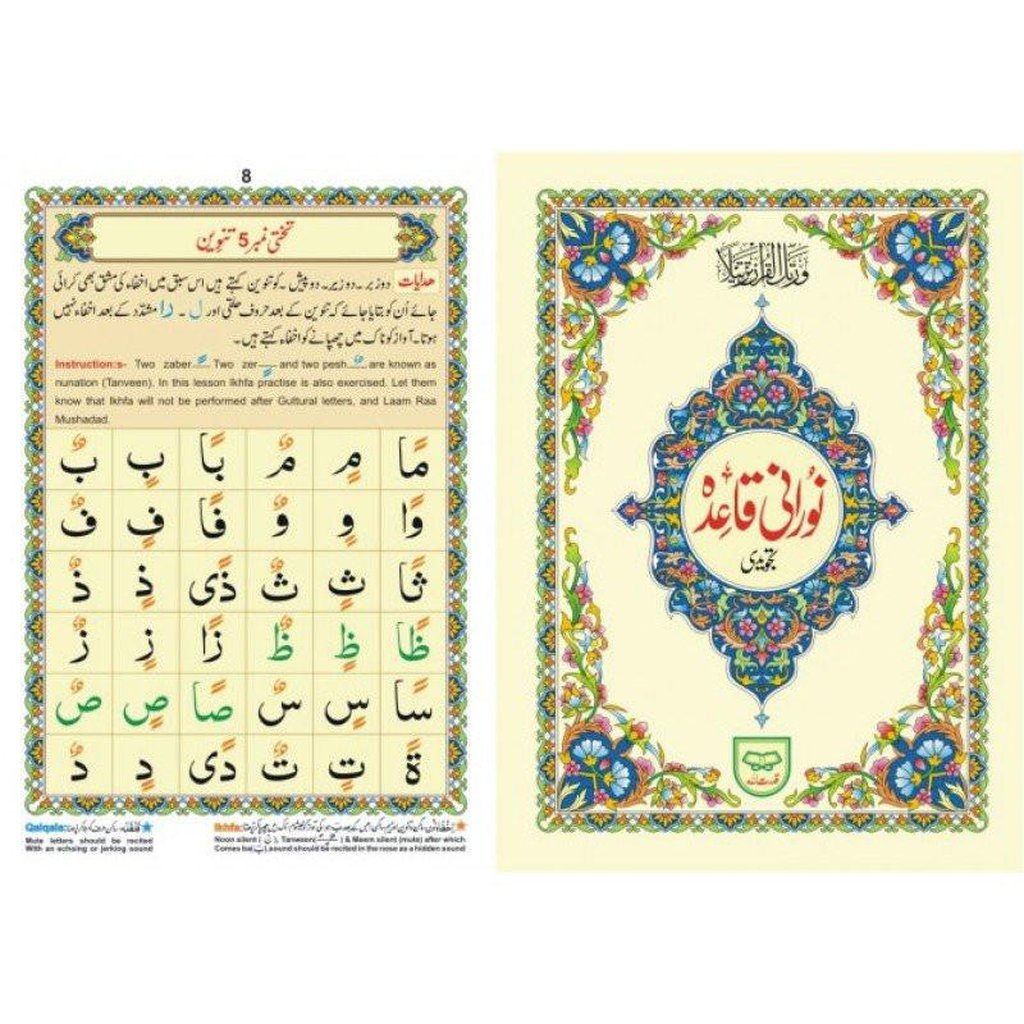 8
تختی نمبر 5 تنوین
ھدایات دوزبر۔ دوزیر۔ دوپیش۔ کو تنوین کہتے ہیں اس سبق میں اخفاء کی مشق بھی کرائی
جائے اُن کو بتایا جائے کہ تنوین کے بعد حروف حلقی اور ل ۔ را مشدّد کے بعد اخفاء نہیں
ہوتا۔ آواز کو ناک میں چھپانے کو اخفاء کہتے ہیں۔
Instruction:s- Two zaber ً Two zer ٍ and two pesh ٌ are known as
nunation (Tanveen). In this lesson Ikhfa practise is also exercised. Let them
know that Ikhfa will not be performed after Guttural letters, and Laam Raa
Mushadad.
مًا مٍ مٌ بًا بٍ بٌ
وًا وٍ وٌ فًا فٍ فٌ
ثًا ثٍ ثٌ ذًى ذٍ ذٌ
ظًا ظٍ ظٌ زًا زٍ زٌ
سًا سٍ سٌ صًا صٍ صٌ
ةً تٍ تٌ دًى دٍ دٌ
Qalqala:
Mute letters should be recited
With an echoing or jerking sound
Ikhfa:
Noon silent ( نْ ), Tanween( ) & Meem silent (mute) after which
Comes ba( ب ) sound should be recited in the nose as a hidden sound
وَرَتِّلِ الْقُرْاٰنَ تَرْتِيْلًا
نُورانی قاعِدہ
تجویدی
قدرت اللہ